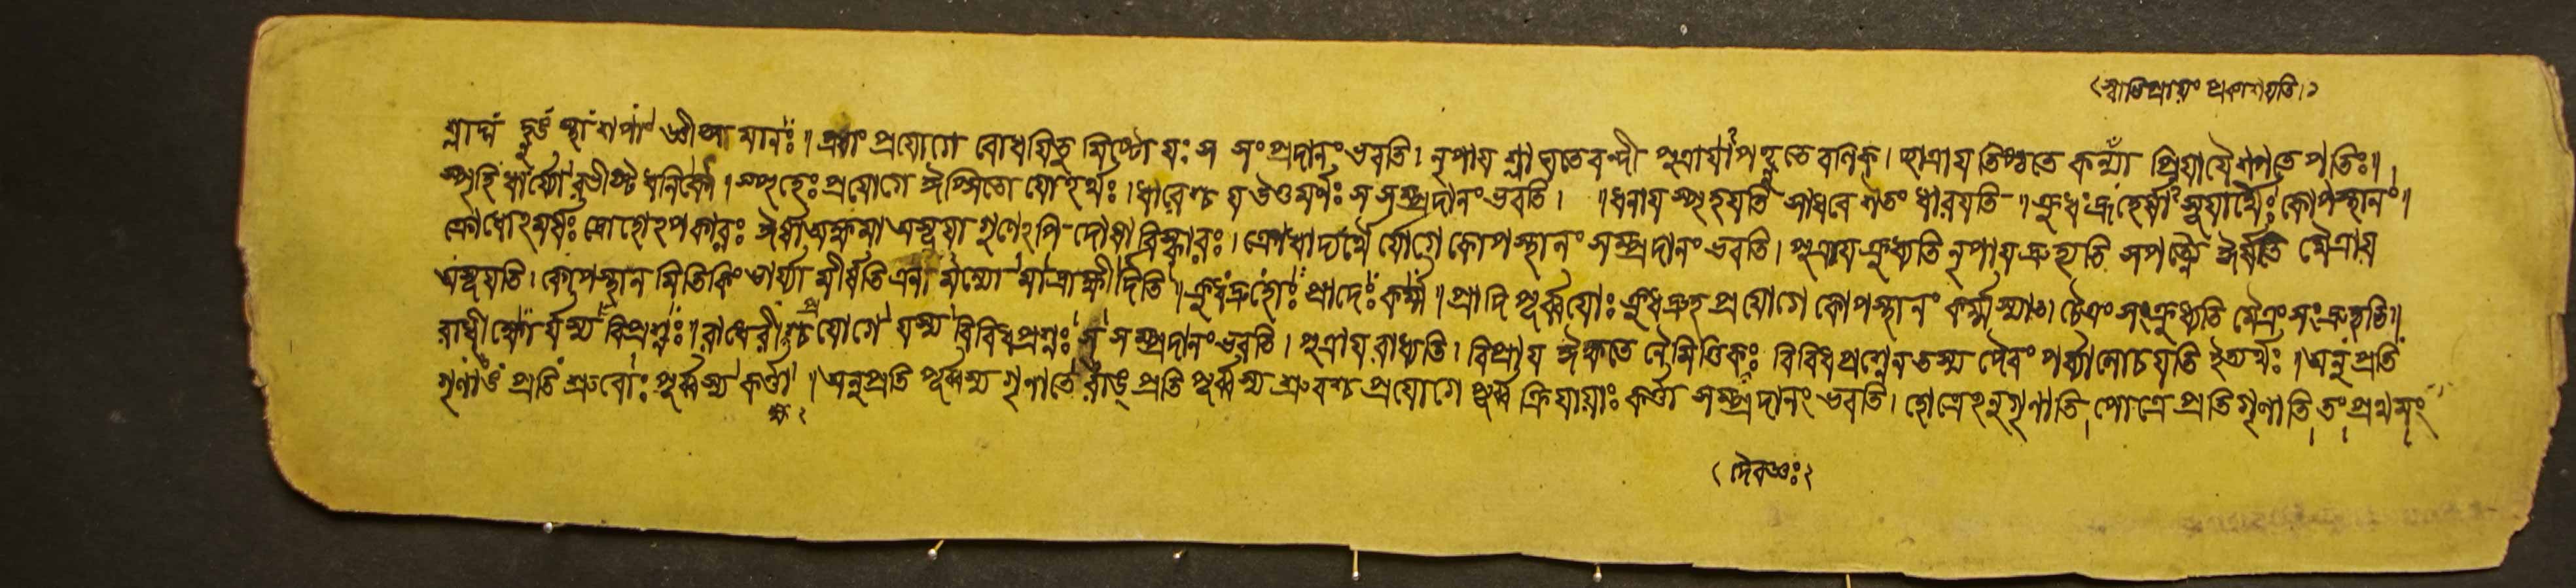 স্বাভিপ্রায়ং প্রকাশয়তি।২
শ্লাঘ হ্নুঙ স্থা শপাং জ্ঞীপ্স্যমানঃ॥ এষাং প্রয়োগে বোধয়িতু মিষ্টো যঃ স সংপ্রদানং ভবতি। নৃপায় শ্লাঘতে বন্দী পুত্রায়াপহ্নুতে বনিক। ছাত্রায় তিষ্ঠতে কন্যা প্রিয়ায়ৈ শপতে পতিঃ॥
স্পৃহি ধার্য্যো রভীষ্ট ধনিকৌ। স্পৃহেঃ প্রয়োগে ঈপ্সিতো যোঽর্থঃ। ধারেশ্চ য উত্তমর্ণঃ স সম্প্রদানং ভবতি। ॥ধনায় স্পৃহয়তি সাধবে শতং ধারয়তি॥ ক্রুধ দ্রুহের্ষা সূয়ার্থৈঃ কোপস্থানং॥
ক্রোধোঽমর্ষঃ দ্রোহোঽপকারঃ ঈর্ষা অক্ষমা অসূয়া গুণেঽপি দোষা বিষ্কারঃ। ক্রোধাদ্যর্থৈ র্যোগে কোপস্থানং সম্প্রদানং ভবতি। পুত্রায় ক্রুধ্যতি নৃপায় দ্রুহ্যতি সপত্ন্যৈ ঈর্ষতি মৈত্রায়
অসূয়তি। কোপস্থান মিতি কিং ভার্য্যা মীর্ষতি এনা মন্যো মাদ্রাক্ষীদিতি॥ ক্রুধদ্রুহোঃ প্রাদেঃ কর্ম্ম॥ প্রাদি পূর্ব্বয়োঃ ক্রুধদ্রুহ প্রয়োগে কোপস্থানং কর্ম্ম স্যাৎ। চৈত্রং সংক্রুধ্যতি মৈত্রং সংদ্রুহ্যতি॥
রাধীক্ষ্যো র্যস্য বিপ্রশ্নঃ॥ রাধেরীক্ষেশ্চ প্রয়োগে যস্য বিবিধপ্রশ্নঃ স সম্প্রদানং ভবতি। পুত্রায় রাধ্যতি। বিপ্রায় ঈক্ষতে নৈমিত্তিকঃ বিবিধ প্রশ্নেন তস্য দৈবং পর্য্যালোচয়তি ইত্যর্থঃ॥ অনু প্রতি
গৃণাঙ প্রতি শ্রুবোঃ পূর্ব্বস্য কর্ত্তা॥ অনুপ্রতি পূর্ব্বস্য গৃণাতে রাঙ্ প্রতি পূর্ব্বস্য শ্রুবশ্চ প্রয়োগে পূর্ব্ব ক্রিয়ায়াঃ কর্ত্তা সম্প্রদানং ভবতি। হোত্রেঽনুগৃণাতি পোত্রে প্রতিগৃণাতি তং প্রথমং
দৈবজ্ঞঃ২